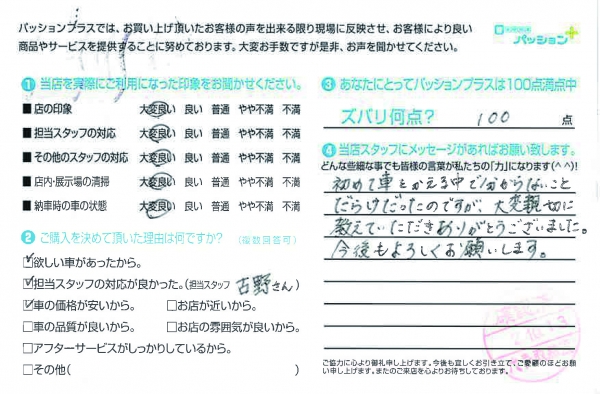 パッションプラスでは、お買い上げ頂いたお客様の声を出来る限り現場に反映させ、お客様により良い
商品やサービスを提供することに努めております。大変お手数ですが是非、お声を聞かせてください。
パッション
① 当店を実際にご利用になった印象をお聞かせください。
■ 店の印象 大変良い 良い 普通 やや不満 不満
■ 担当スタッフの対応 大変良い 良い 普通 やや不満 不満
■ その他のスタッフの対応 大変良い 良い 普通 やや不満 不満
■ 店内・展示場の清掃 大変良い 良い 普通 やや不満 不満
■ 納車時の車の状態 大変良い 良い 普通 やや不満 不満
② ご購入を決めて頂いた理由は何ですか? (複数回答可)
☑欲しい車があったから。
☑担当スタッフの対応が良かった。(担当スタッフ 古野さん)
☑車の価格が安いから。 □お店が近いから。
□車の品質が良いから。 □お店の雰囲気が良いから。
□アフターサービスがしっかりしているから。
□その他( )
③ あなたにとってパッションプラスは100点満点中
ズバリ何点? 100 点
④ 当店スタッフにメッセージがあればお願い致します。
どんな些細な事でも皆様の言葉が私たちの「力」になります(^^)!
初めて車をかえる中で分からないこと
だらけだったのですが、大変親切に
教えていただきありがとうございました。
今後もよろしくお願いします。
ご協力に心より御礼申し上げます。今後も宜しくお引き立て、ご愛顧のほどお願
い申し上げます。またのご来店を心よりお待ちしております。